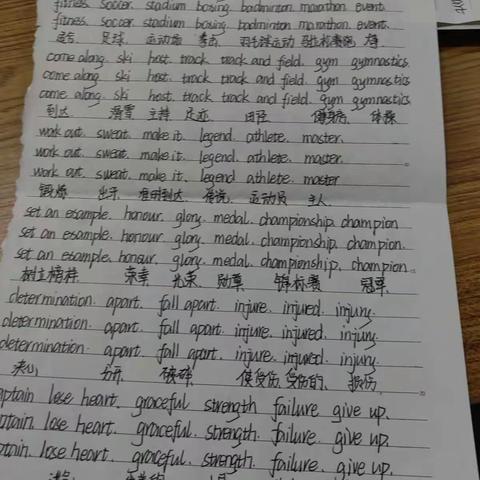 fitness. soccer. stadium boxing. badminton marathon. event.
fitness. soccer. stadium boxing. badminton marathon. event.
足球. 运动场 拳击. 羽毛球运动
come along. ski host. track track and field. gym gymnastics.
come along. ski host. track track and field. gym gymnastics
come along. ski host. track track and field. gym gymnastics
到达. 滑雪 主持 足迹. 田径 体操
work out. sweat. make it. legend. athlete. master.
work out. sweat. make it. legend. athlete. master.
work out. sweat. make it. legend. athlete. master
锻炼 出汗 传说. 运动员 主人.
set an example. honour. glory. medal. championship. champion
set an example. honour. glory. medal. championship. champion.
set an example. honour. glory. medal. championship. champion.
树立榜样. 荣幸 光荣. 勋章 锦标赛 冠军.
determination. apart. fall apart. injure. injured. injury.
determination. apart. fall apart. injure. injured. injury.
determination. apart. fall apart. injure. injured. injury.
决心 分开. 破碎. 使受伤. 受伤的. 损伤.
ptain lose heart. graceful strength failure. give up.
ptain. lose heart. graceful. strength. failure. give up.
ptain. lose heart. graceful. strength. failure. give up.